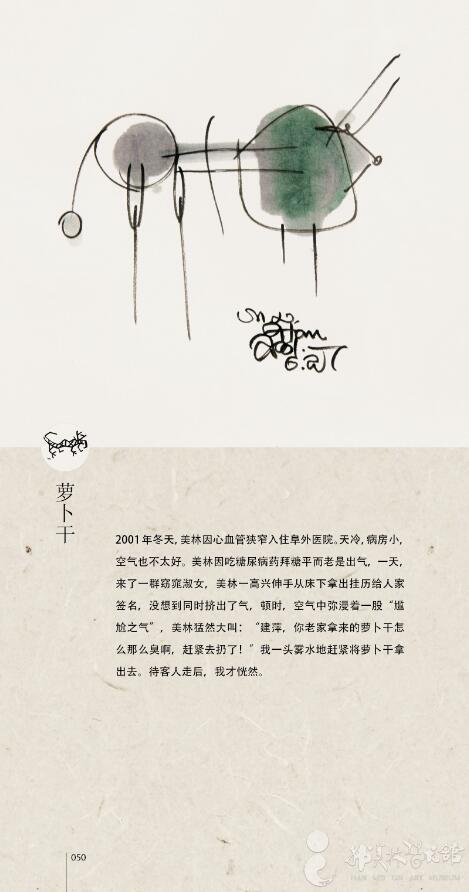 萝卜干
2001年冬天,美林因心血管狭窄入住阜外医院。天冷,病房小,
空气也不太好。美林因吃糖尿病药拜糖平而老是出气,一天,
来了一群窈窕淑女,美林一高兴伸手从床下拿出挂历给人家
签名,没想到同时挤出了气,顿时,空气中弥漫着一股“尴
尬之气”,美林猛然大叫:“建萍,你老家拿来的萝卜干怎
么那么臭啊,赶紧去扔了!”我一头雾水地赶紧将萝卜干拿
出去。待客人走后,我才恍然。
050
HAN MEI LIN ART MUSEUM